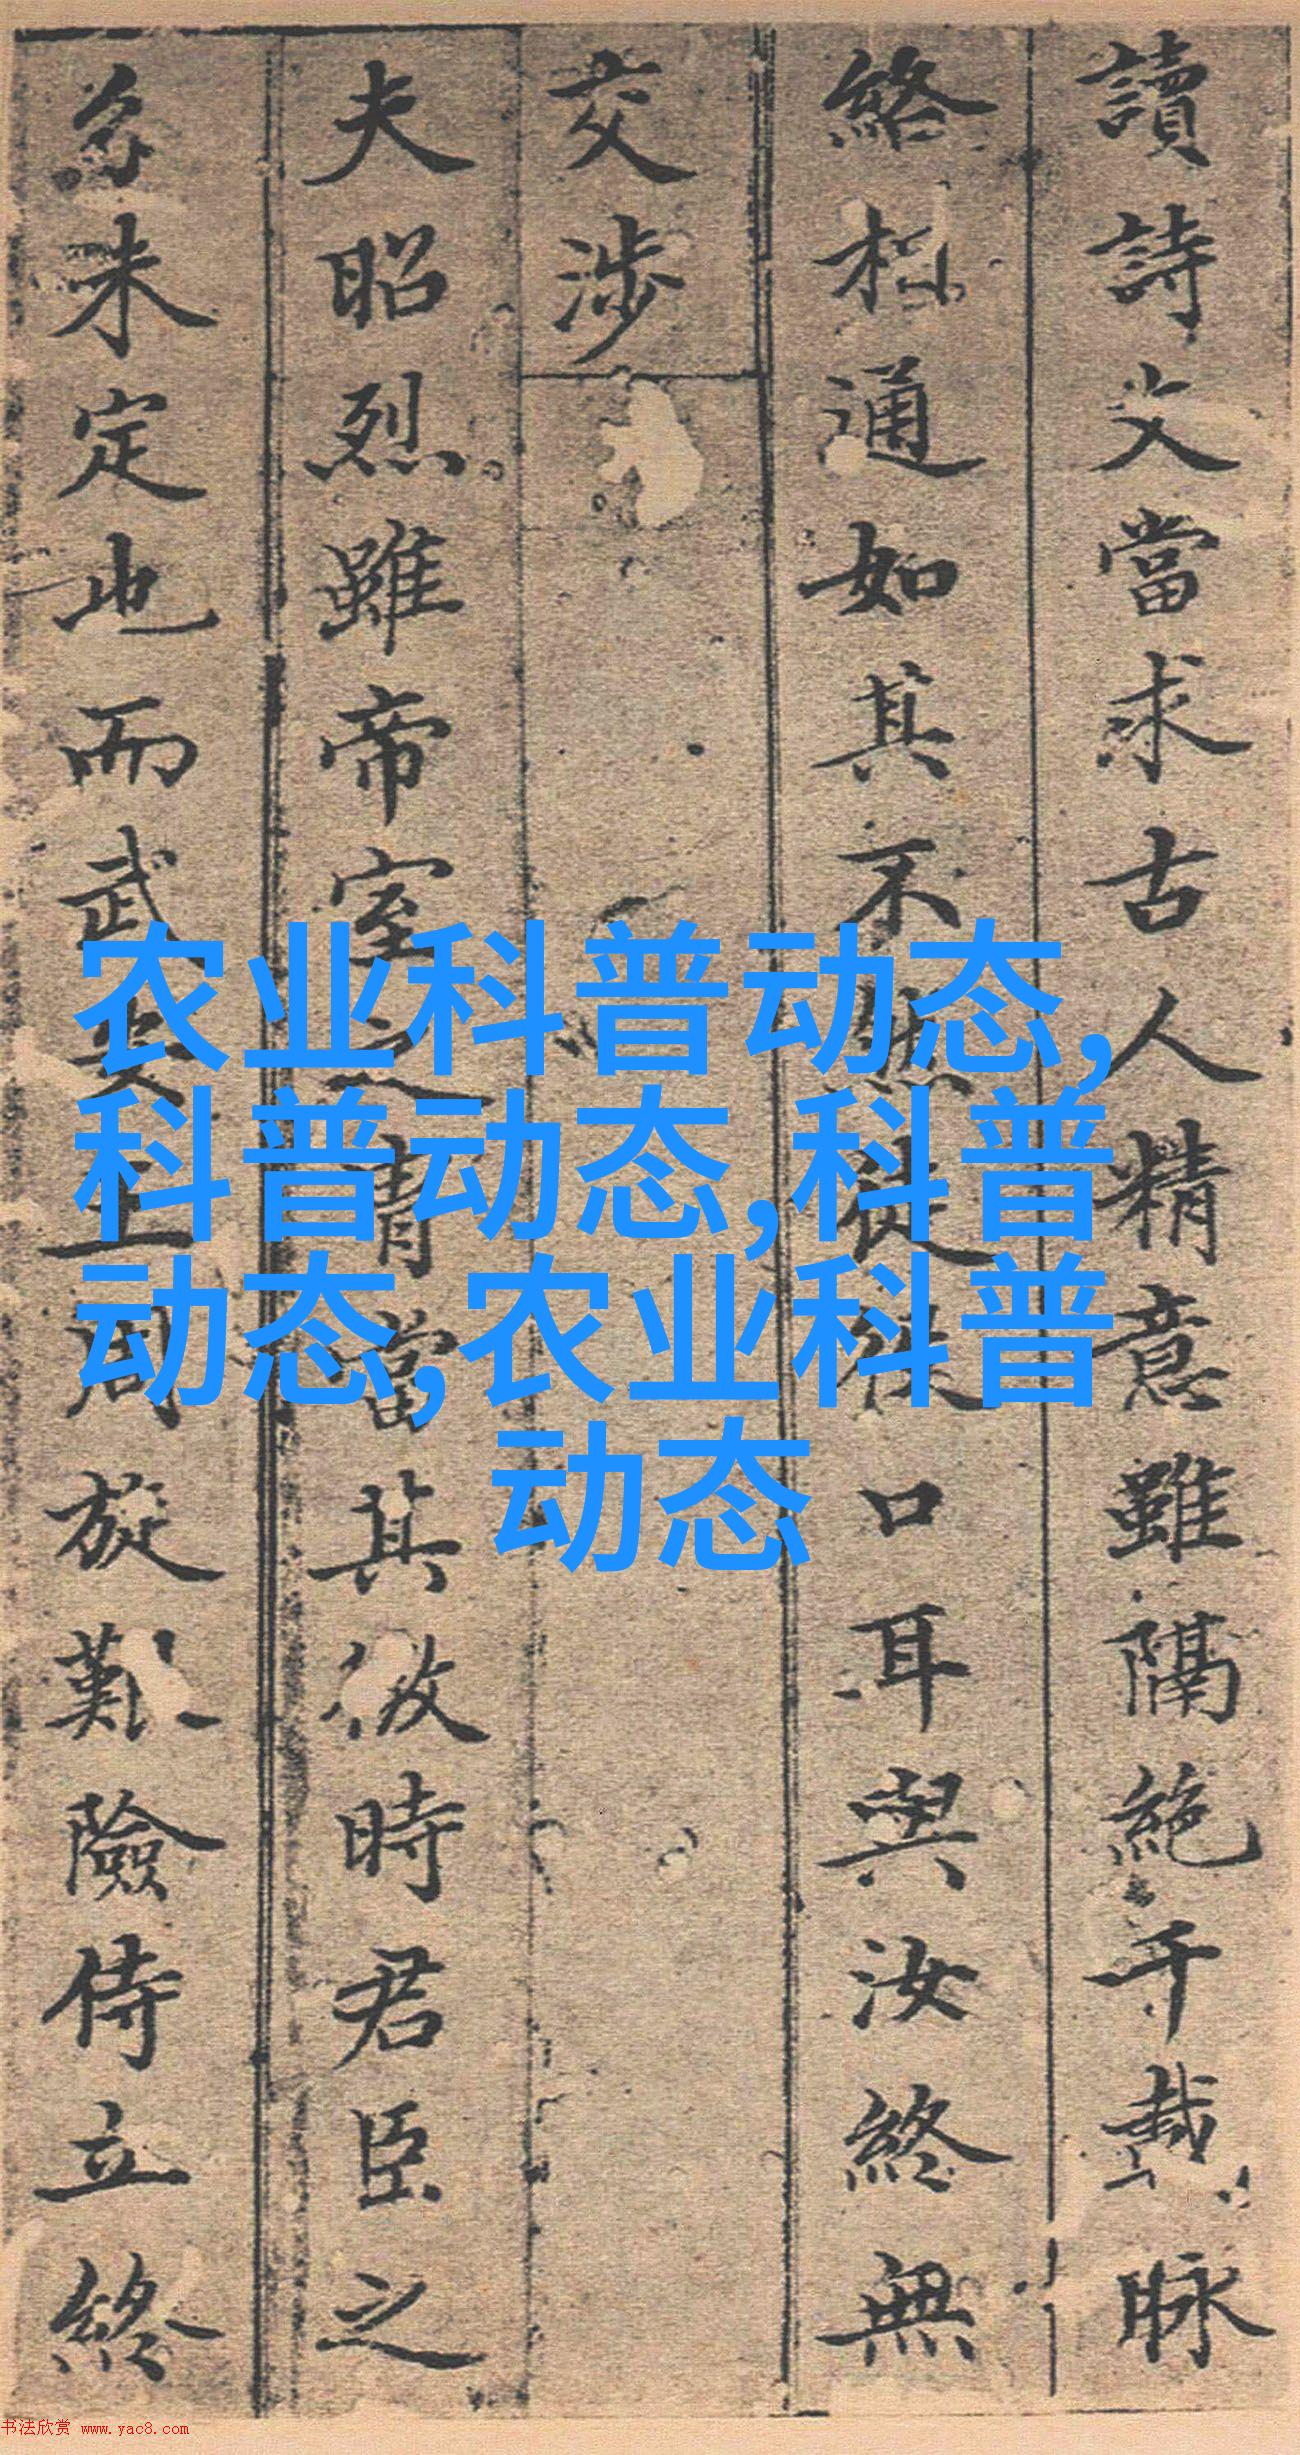 讀詩文當求古人精意雖隔絶千載脉
絡相通如其不然徒從口耳與汝終無
交涉
夫昭烈雖帝室之 當其 時君臣之
未定也而武 周旋艱險侍立終
农业科普动态,
科普动态,科普
动态,农业科普
动态
书法欣赏 www.yac8.com